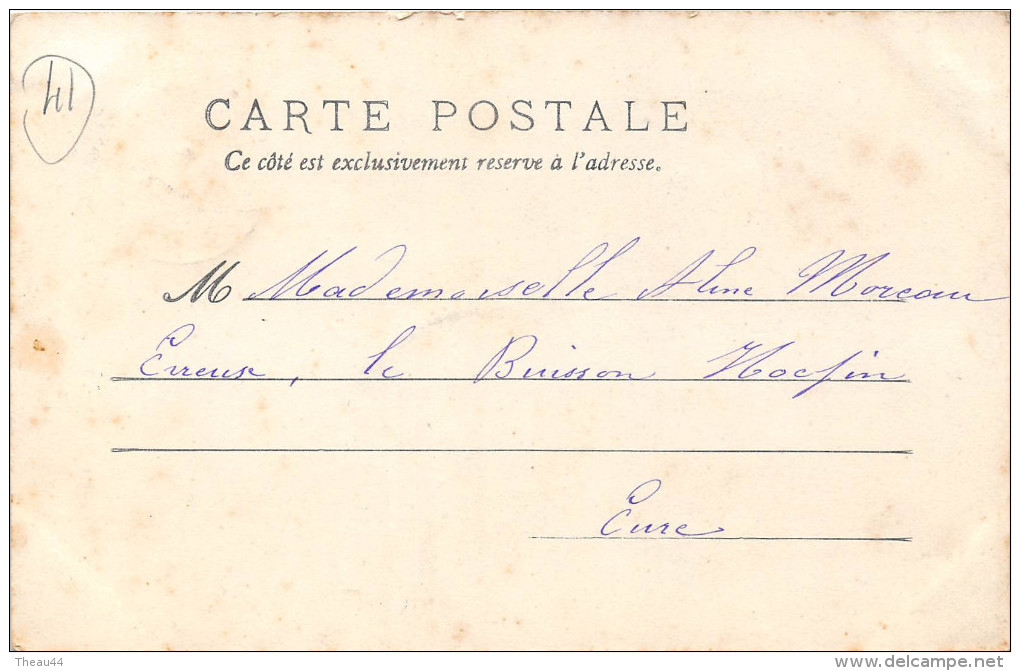 41
CARTE POSTALE
Ce côté est exclusivement reserve à l'adresse.
M Mademoiselle Aline Moreau
Evreux, le Buisson Hocpin
Eure
Theau44
delcampe.net